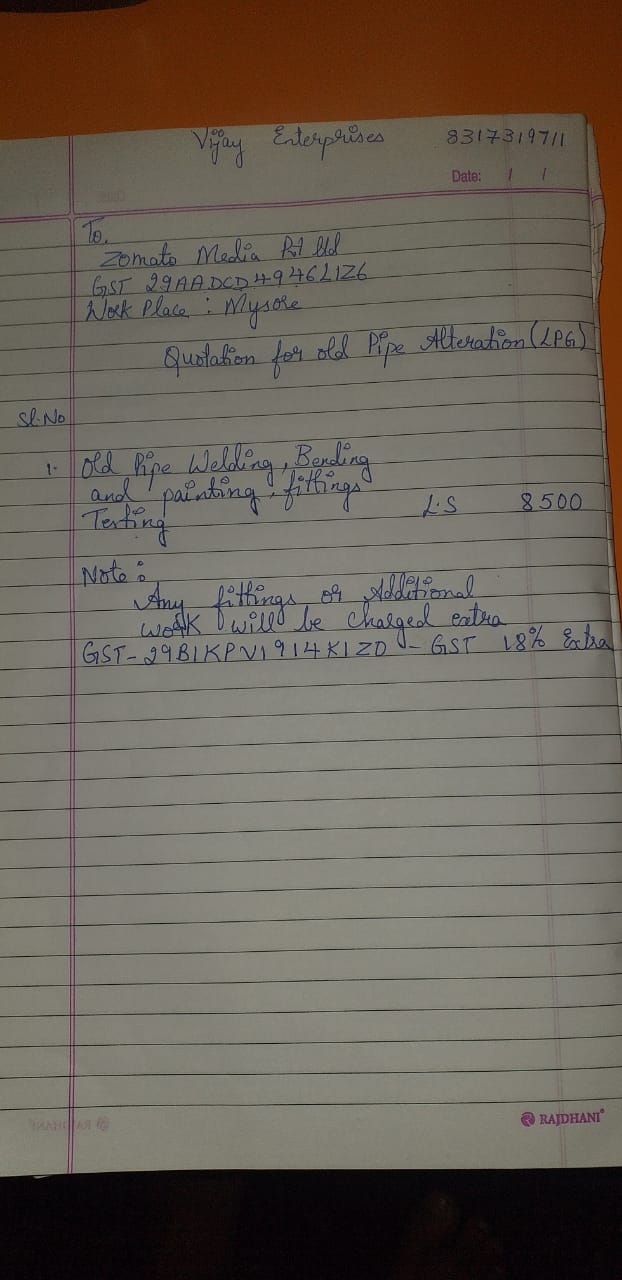 Vijay Enterprises 8317319711
Date: / /
To,
Zomato Media Pvt Ltd
GST 29AADCD4946L1Z6
Work Place : Mysore
Quotation for old Pipe Alteration (LPG)
Sl.No
1. Old Pipe Welding, Bending
and painting, fittings
Testing L.S 8500
Note :
Any fittings or Additional
work will be charged extra
GST-29BIKPV1914K1ZD - GST 18% Extra
RAJDHANI